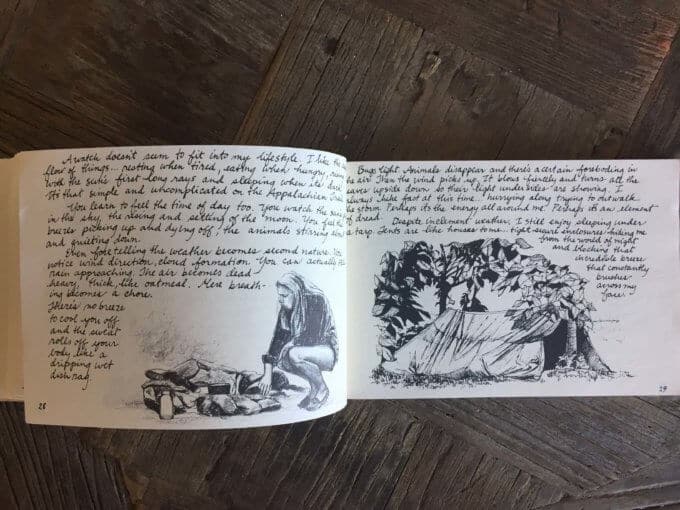 A watch doesn't seem to fit into my lifestyle. I like the
flow of things... resting when tired, eating when hungry, rising
with the sun's first long rays and sleeping when it's dark.
It's that simple and uncomplicated on the Appalachian
You learn to feel the time of day too. You watch the
in the sky, the rising and setting of the moon. You feel the
breeze picking up and dying off, the animals stirring about
and quieting down.
Even foretelling the weather becomes second nature. You
notice wind direction, cloud formation. You can actually
rain approaching. The air becomes dead
heavy, thick like oatmeal. Mere breath-
ing becomes a chore.
There's no breeze
to cool you off
and the sweat
rolls off your
body like a
dripping wet
dish rag.
28
Bugs light. Animals disappear and there's a certain foreboding in
the air. Then the wind picks up. It blows fiercely and turns all the
leaves upside down so their light undersides are showing. I
always hike fast at this time, hurrying along trying to outwalk
the storm. Perhaps it's the energy all around me. Perhaps it's an element
of dread.
Despite inclement weather, I still enjoy sleeping under
a tarp. Tents are like houses to me.. tight secure enclosures hiding me
from the world of night
and blocking that
incredible breeze
that constantly
brushes
across my
face.
29